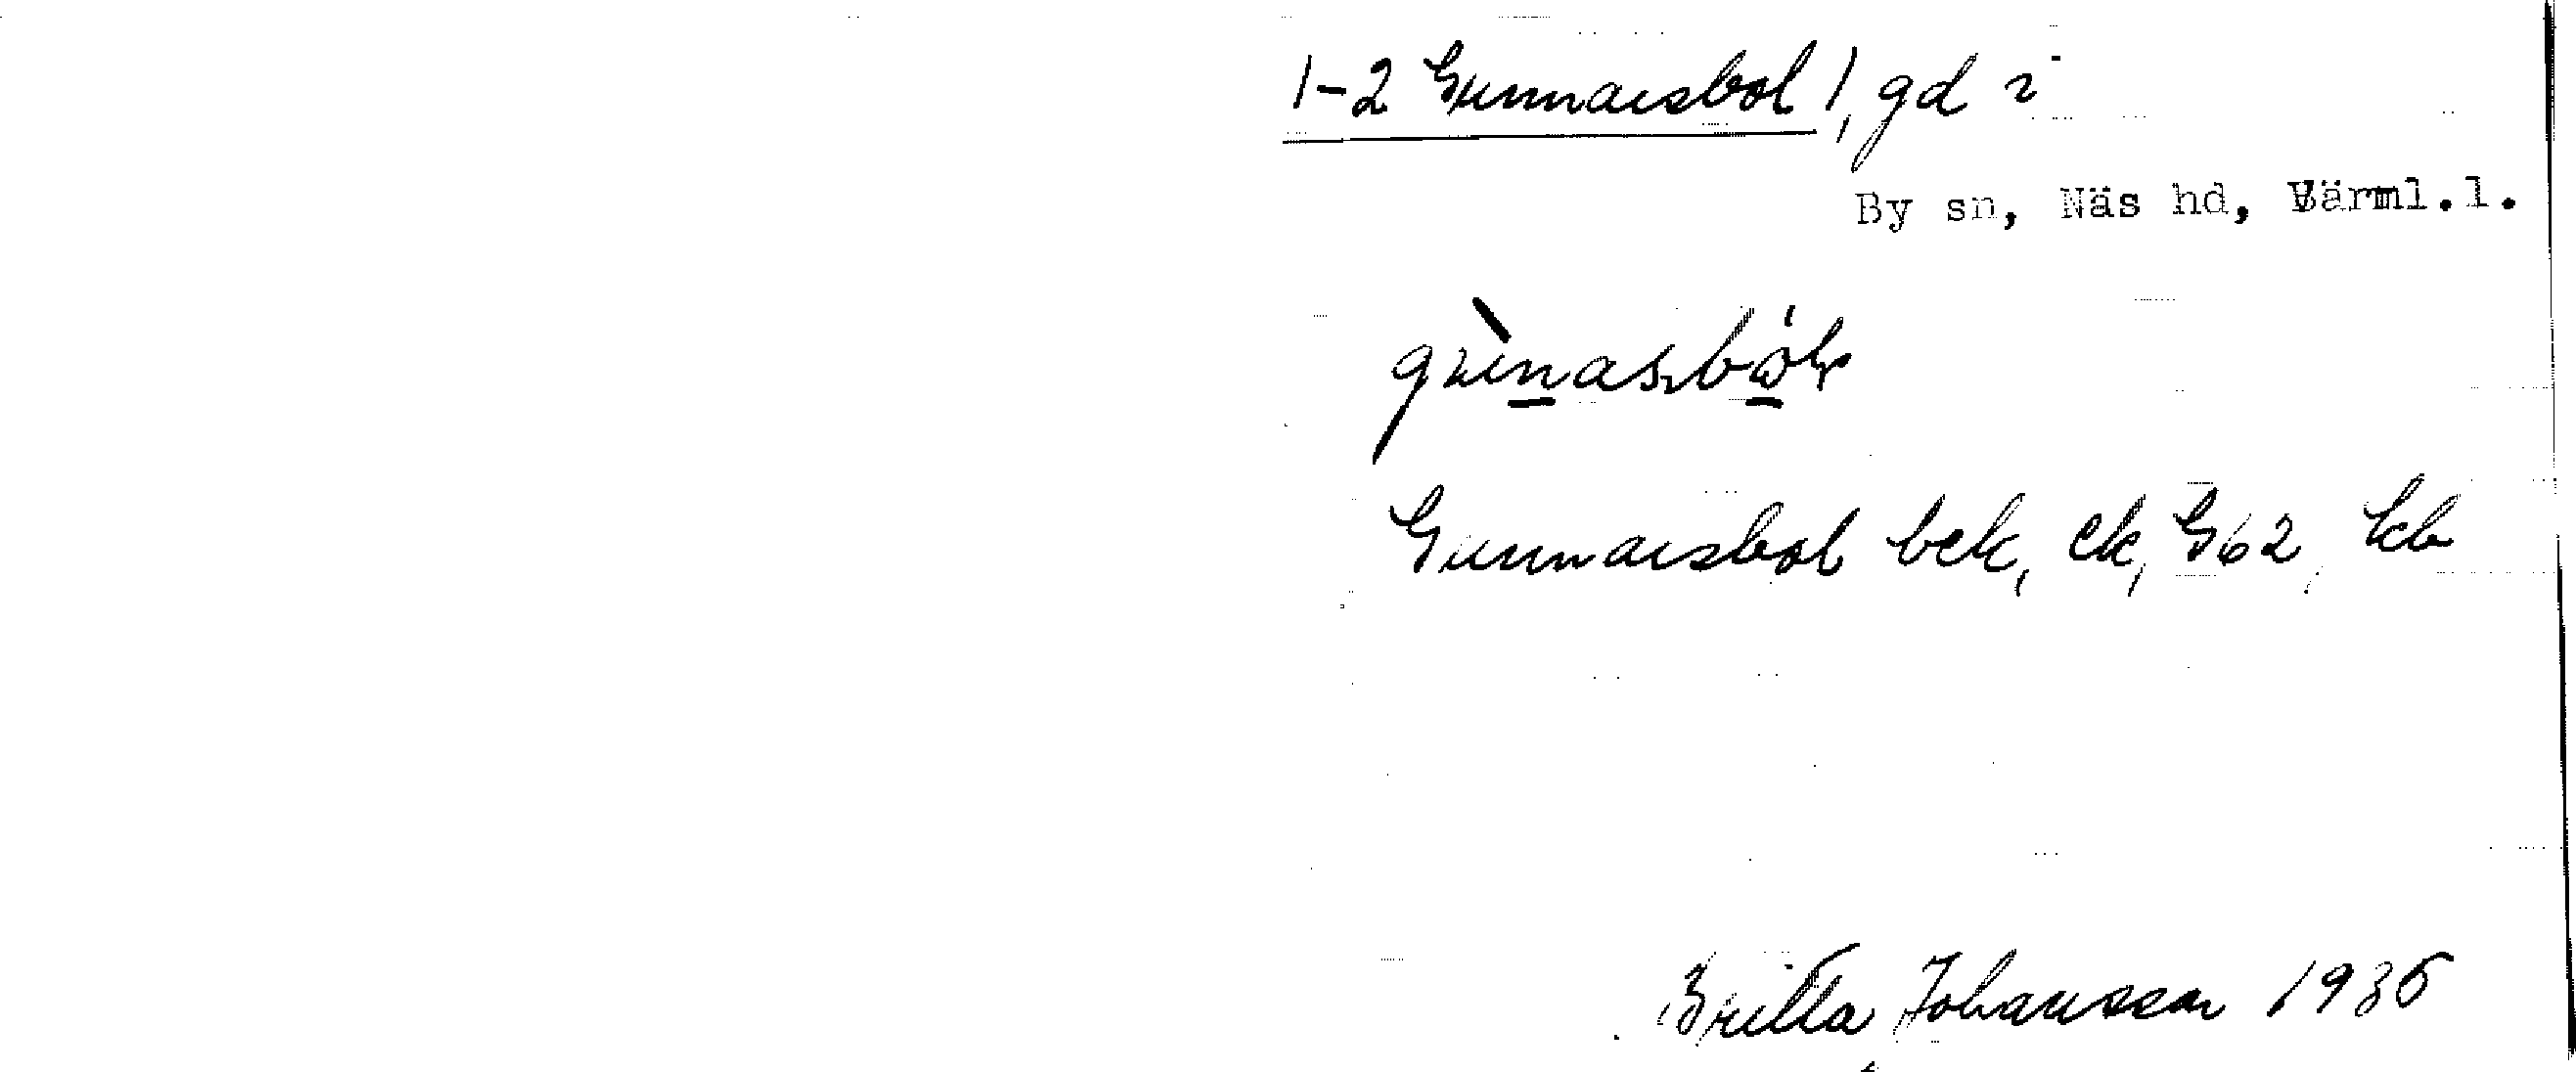 1-2 Gunnarsbol 1, gd i
By sn, Näs hd, Värml.l.
Gunnarsbol bek, ek, G62, kb
Britta Johansson 1935